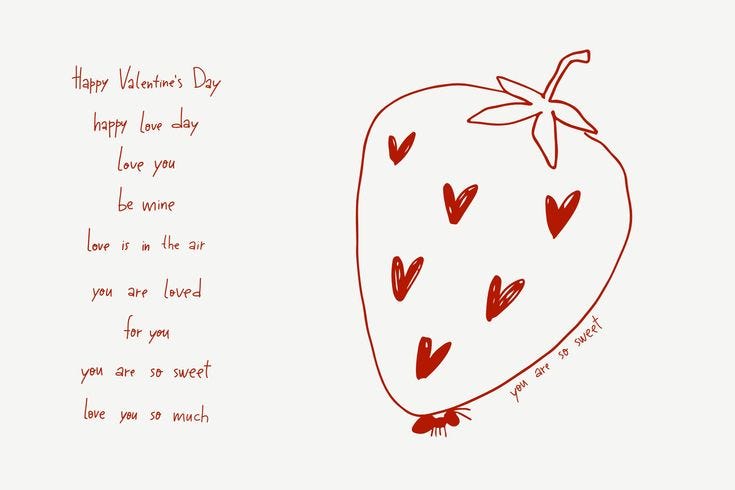 Happy Valentine's Day
happy love day
love you
be mine
love is in the air
you are loved
for you
you are so sweet
love you so much
you are so sweet